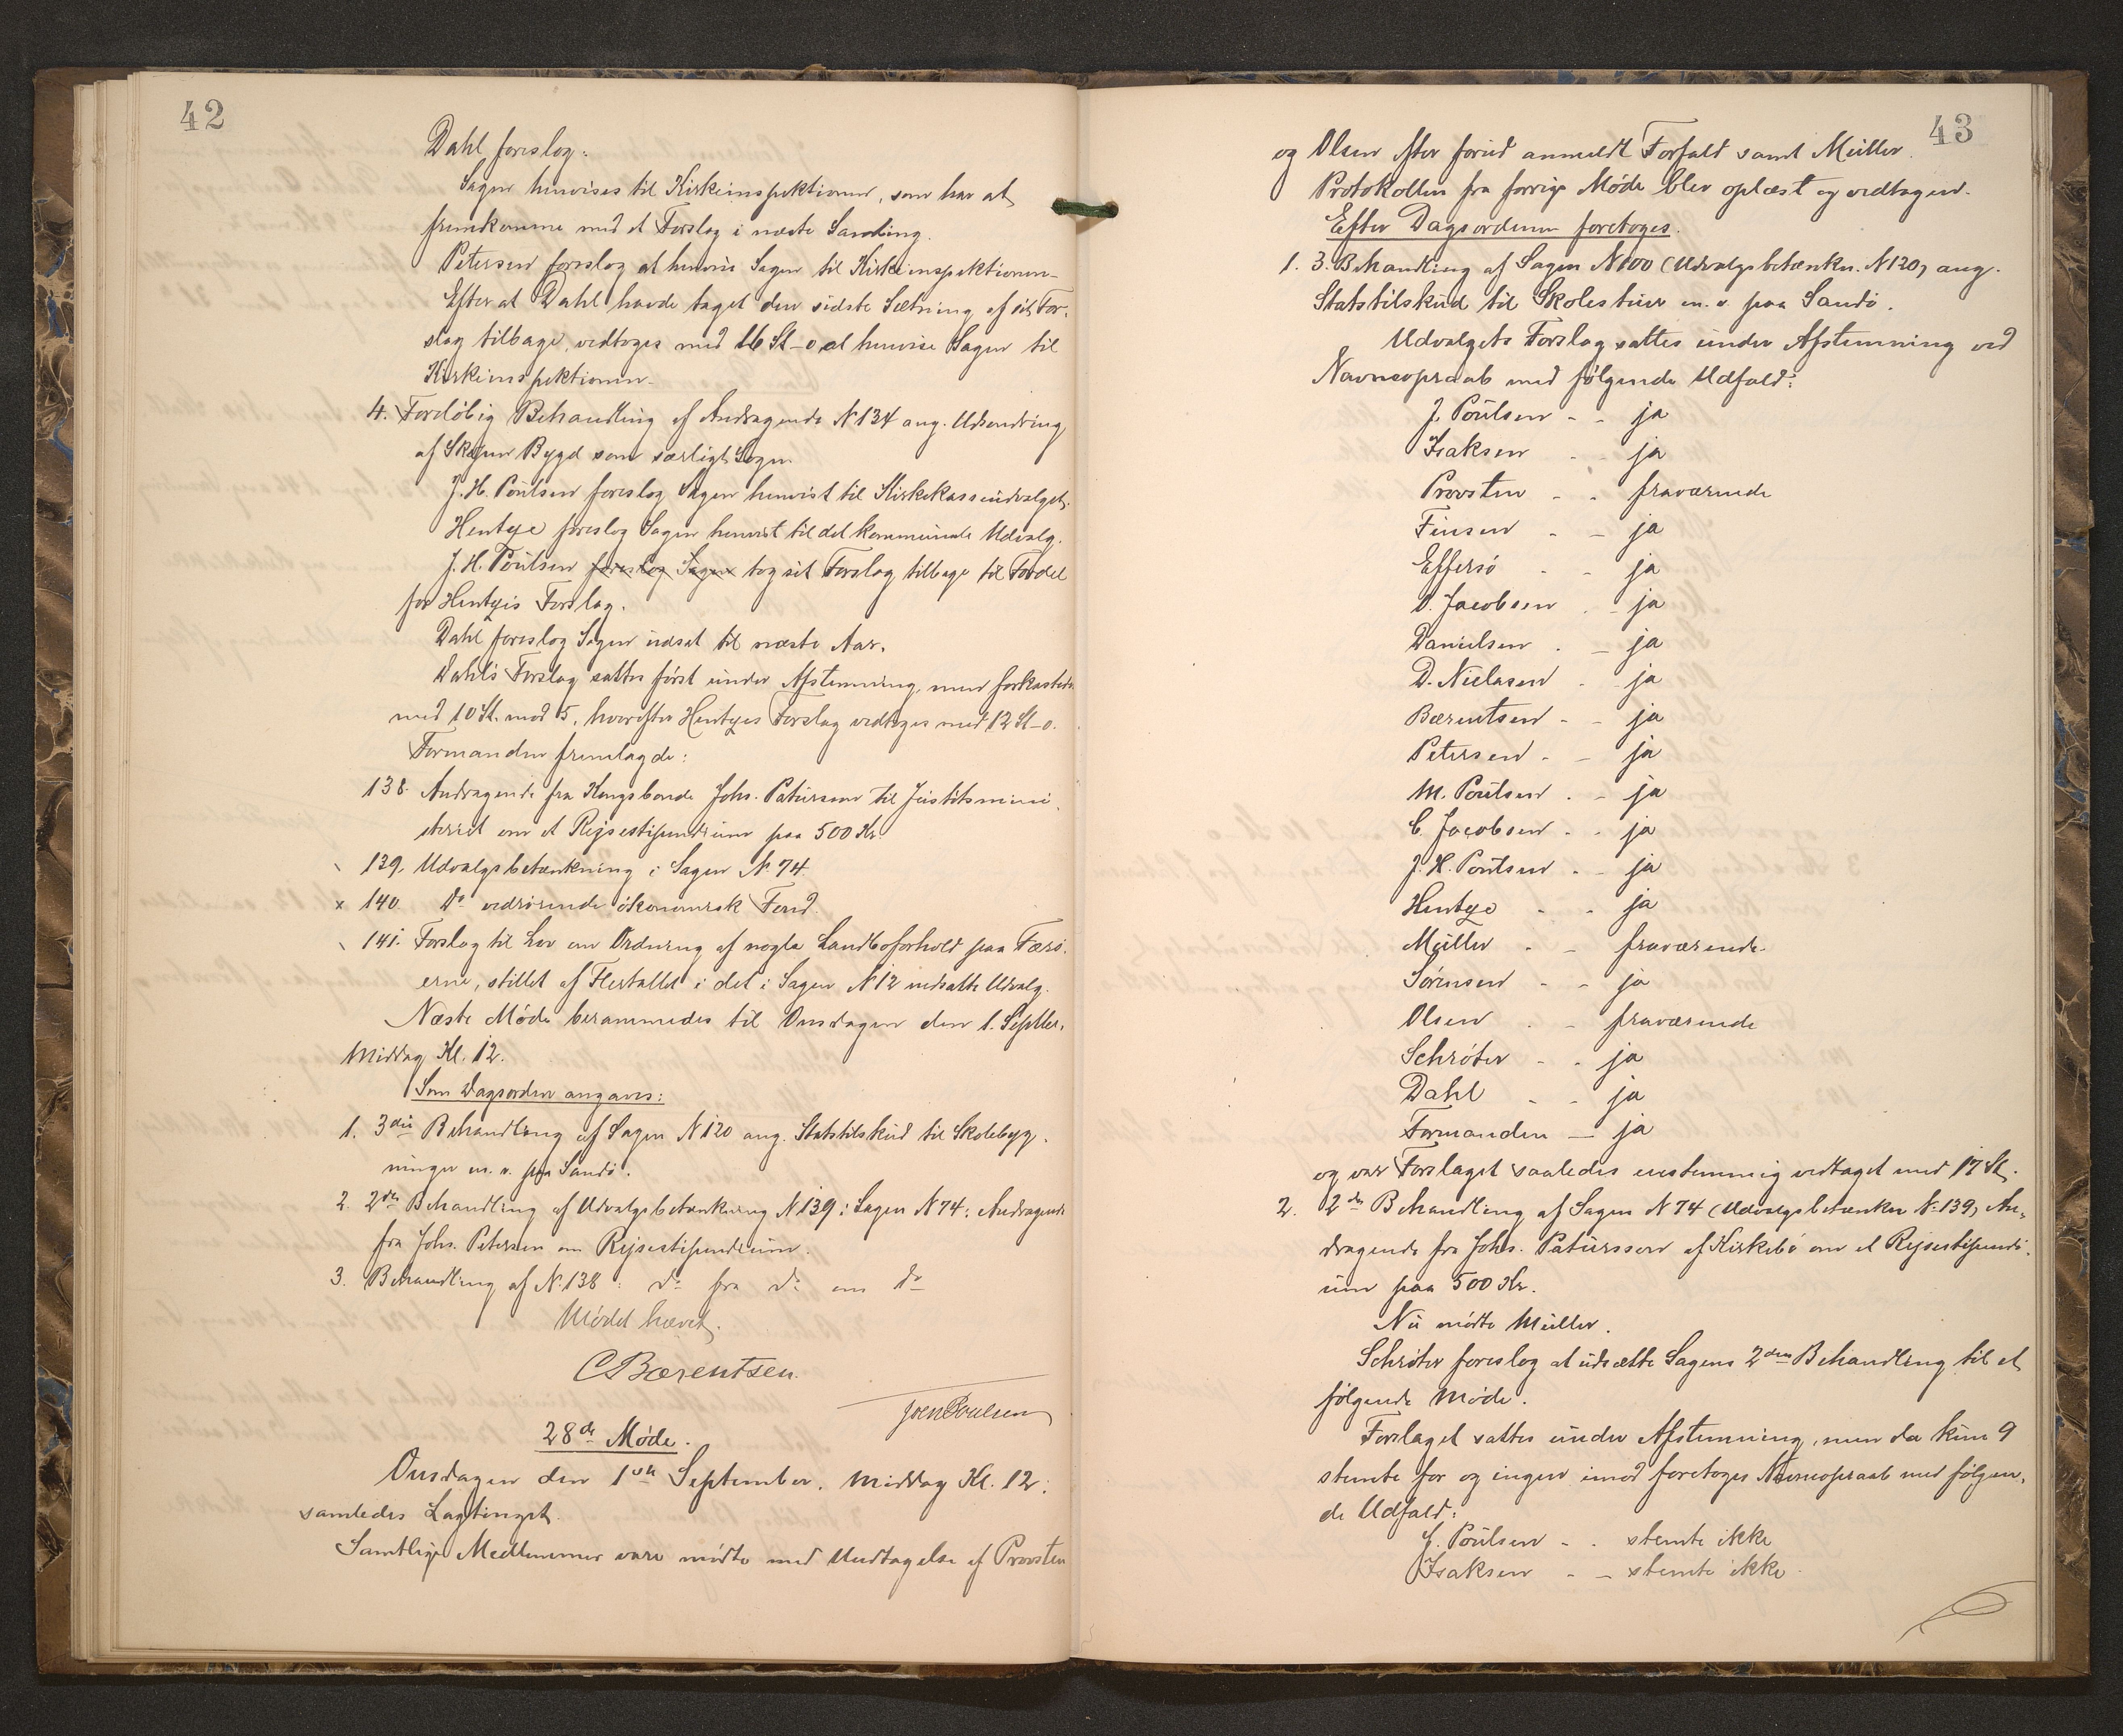 42
Dahl foreslog:
Sagen henvises til Kirkeinspektionen, som har at
fremkomme med et Forslag i næste Samling.
Petersen foreslog at henvise Sagen til Kirkeinspektionen.
Efter at Dahl havde taget den sidste Sætning af sit For-
slag tilbage, vedtoges med 16 St - 0 at henvise Sagen til
Kirkeinspektionen.
4. Foreløbig Behandling af Andragende N 134 ang. Udsondring
af Skopun Bygd som særligt Sogn.
J. H. Poulsen foreslog Sagen henvist til Kirkekasseudvalget.
Hentze foreslog Sagen henvist til det kommunale Udvalg.
J. H. Poulsen foreslog Sagen tog sit Forslag tilbage til Fordel
for Hentzes Forslag.
Dahl foreslog Sagen udsat til næste Aar.
Dahls Forslag sattes først under Afstemning, men forkastedes
med 10 St. mod 5, hvorefter Hentzes Forslag vedtoges med 12 St - 0.
Formanden fremlagde:
138. Andragende fra Kongsbonde Johs. Patursson til Justitsmini-
steriet om et Rejsestipendium paa 500 Kr.
139. Udvalgsbetænkning i Sagen N. 74.
x 140. Do vedrørende økonomisk Fond.
141. Forslag til Lov om Ordning af nogle Landboforhold paa Færø-
erne, stillet af Flertallet i det i Sagen N 12 nedsatte Udvalg.
Næste Møde berammedes til Onsdagen den 1. Septbr.
Middag Kl. 12.
Som Dagsorden angaves:
1. 3die Behandling af Sagen N 120 ang. Statstilskud til Skolebyg-
ninger m. v. paa Sandø.
2. 2den Behandling af Udvalgsbetænkning N 139 i Sagen N 74: Andragende
fra Johs. Petersen om Rejsestipendium.
3. Behandling af N. 138: do fra do om do
Mødet hævet.
C Bærentsen.
Joen Poulsen
28de Møde.
Onsdagen den 1ste September, Middag Kl. 12,
samledes Lagtinget.
Samtlige Medlemmer vare mødte med Undtagelse af Provsten
43
og Olsen efter forud anmeldt Forfald samt Müller.
Protokollen fra forrige Møde blev oplæst og vedtagen.
Efter Dagsordenen foretoges.
1. 3. Behandling af Sagen N 100 (Udvalgsbetænkn. N 120) ang.
Statstilskud til Skolestuer m. v. paa Sandø.
Udvalgets Forslag sattes under Afstemning ved
Navneopraab med følgende Udfald:
J. Poulsen - - ja
Isaksen - - ja
Provsten - - fraværende
Finsen - - ja
Effersø - - ja
O. Jacobsen - - ja
Danielsen - - ja
D. Nielasen - - ja
Bærentsen - - ja
Petersen - - ja
M. Poulsen - - ja
C. Jacobsen - - ja
J. H. Poulsen - - ja
Hentze - - ja
Müller - - fraværende
Sørensen - - ja
Olsen - - fraværende
Schrøter - - ja
Dahl - - ja
Formanden - ja
og var Forslaget saaledes enstemmig vedtaget med 17 St.
2. 2den Behandling af Sagen N 74 (Udvalgsbetænkn N. 139) An-
dragende fra Johs. Patursson af Kirkebø om et Rejsestipendi-
um paa 500 Kr.
Nu mødte Müller.
Schrøter foreslog at udsætte Sagens 2den Behandling til et
følgende Møde.
Forslaget sattes under Afstemning, men da kun 9
stemte for og ingen imod foretoges Navneopraab med følgen-
de Udfald:
J. Poulsen - - stemte ikke
Isaksen - - stemte ikke